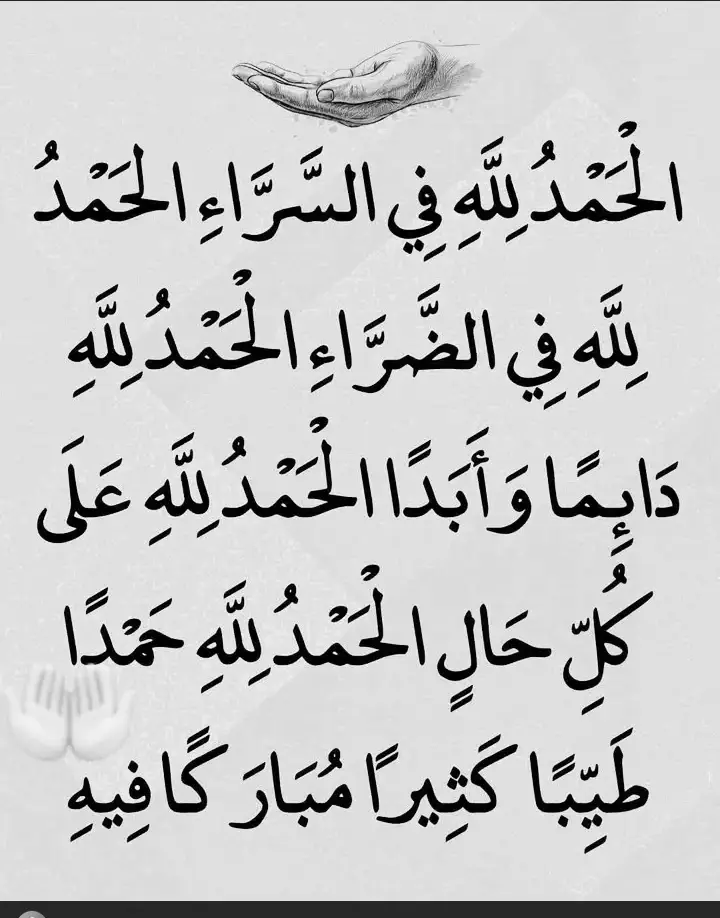 الْحَمْدُ لِلَّهِ فِي السَّرَّاءِ الْحَمْدُ
لِلَّهِ فِي الضَّرَّاءِ الْحَمْدُ لِلَّهِ
دَايِٕمًا وَأَبَدًا الْحَمْدُ لِلَّهِ عَلَى
كُلِّ حَالٍ الْحَمْدُ لِلَّهِ حَمْدًا
طَيِّبًا كَثِيرًا مُبَارَكًا فِيهِ